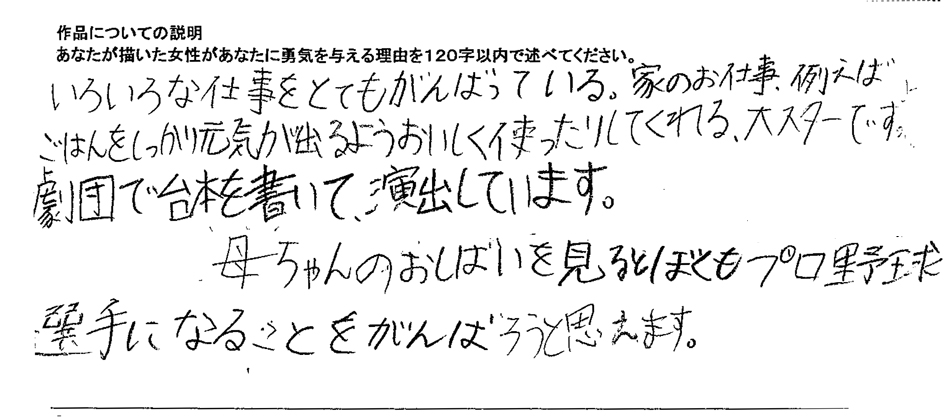 作品についての説明
あなたが描いた女性があなたに勇気を与える理由を120字以内で述べてください。
いろいろな仕事をとてもがんばっている。家のお仕事、例えば
ごはんをしっかり元気が出るようおいしく使ったりしてくれる、大スターです。
劇団で台本を書いて、演出しています。
母ちゃんのおしばいを見るとぼくもプロ野球
選手になることをがんばろうと思えます。